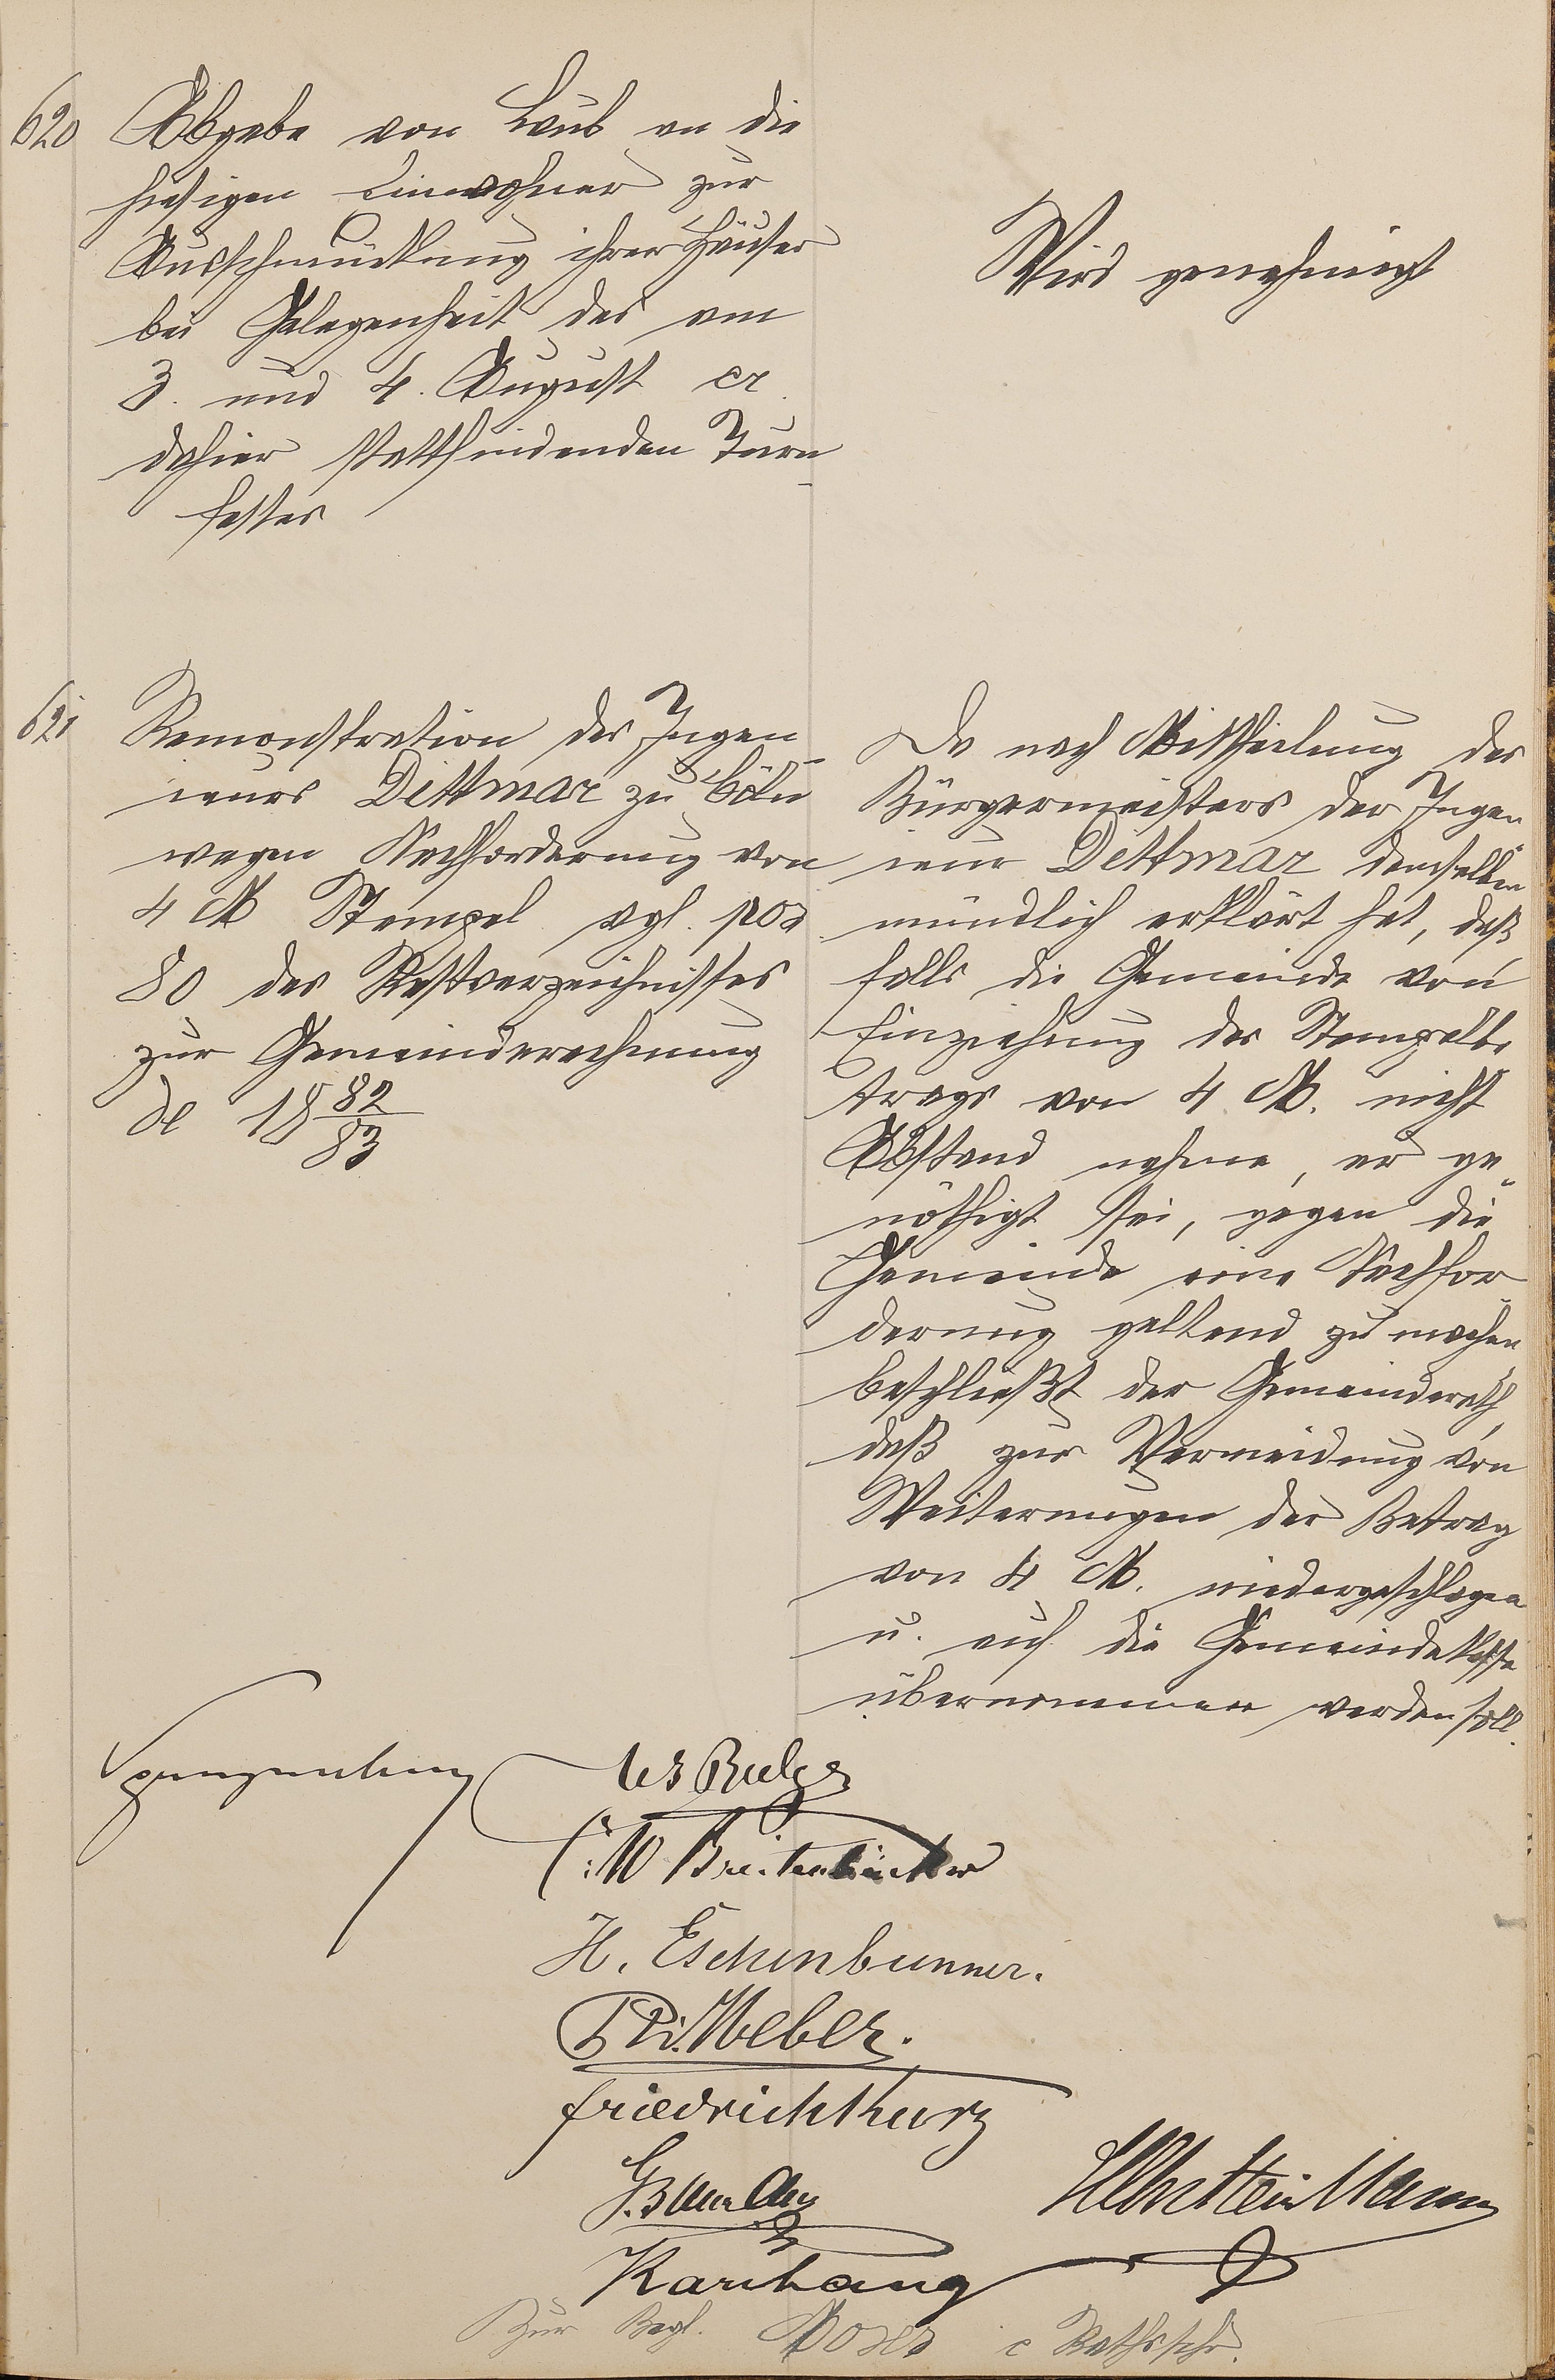 620
Abgabe von Laub an die
hiesigen Einwohner zur
Ausschmückung ihrer Häuser
bei Gelegenheit des am
3. und 4. August cr.
dahier stattfindenden Turn-
festes
Wird genehmigt
621
Remonstration des Ingen-
ieurs Dittmar zu Cöln
wegen Nachforderung von
4 M Stempel vgl. pos
80 des Restverzeichnisses
zur Gemeinderechnung
de 1882/83
Da nach Mittheilung des
Bürgermeisters der Ingen-
ieur Dittmar demselben
mündlich erklärt hat, daß
falls die Gemeinde von
Einziehung des Stempelbe-
trags von 4 M. nicht
Abstand nehme, er ge-
nöthigt sei, gegen die
Gemeinde eine Nachfor-
derung geltend zu machen
beschließt der Gemeinderath,
daß zur Vermeidung von
Weiterungen der Betrag
von 4 M. niedergeschlagen
u. auf die Gemeindekasse
übernommen werden soll.
W Breitenbücher
H. Eschenbrenner.
Weber.
Friedrich Kurz
Karthaus
Zur Begl. c Rathsschr.